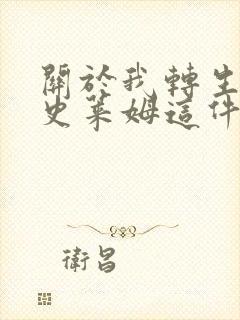 關於我轉生
史萊姆這件
衛昌